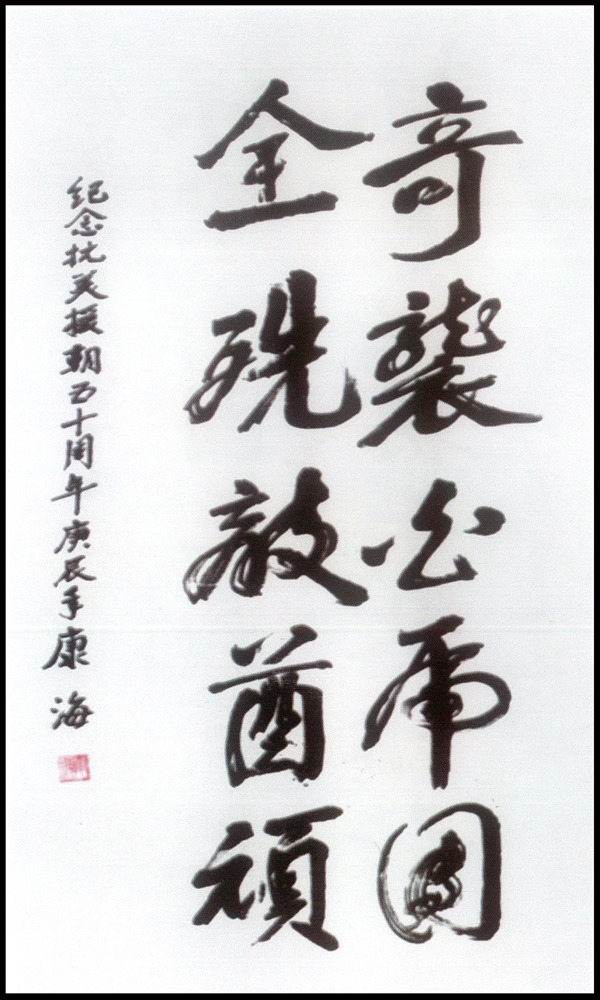 奇襲白虎團
全殲敵酋頑
紀念抗美援朝五十周年庚辰年康海